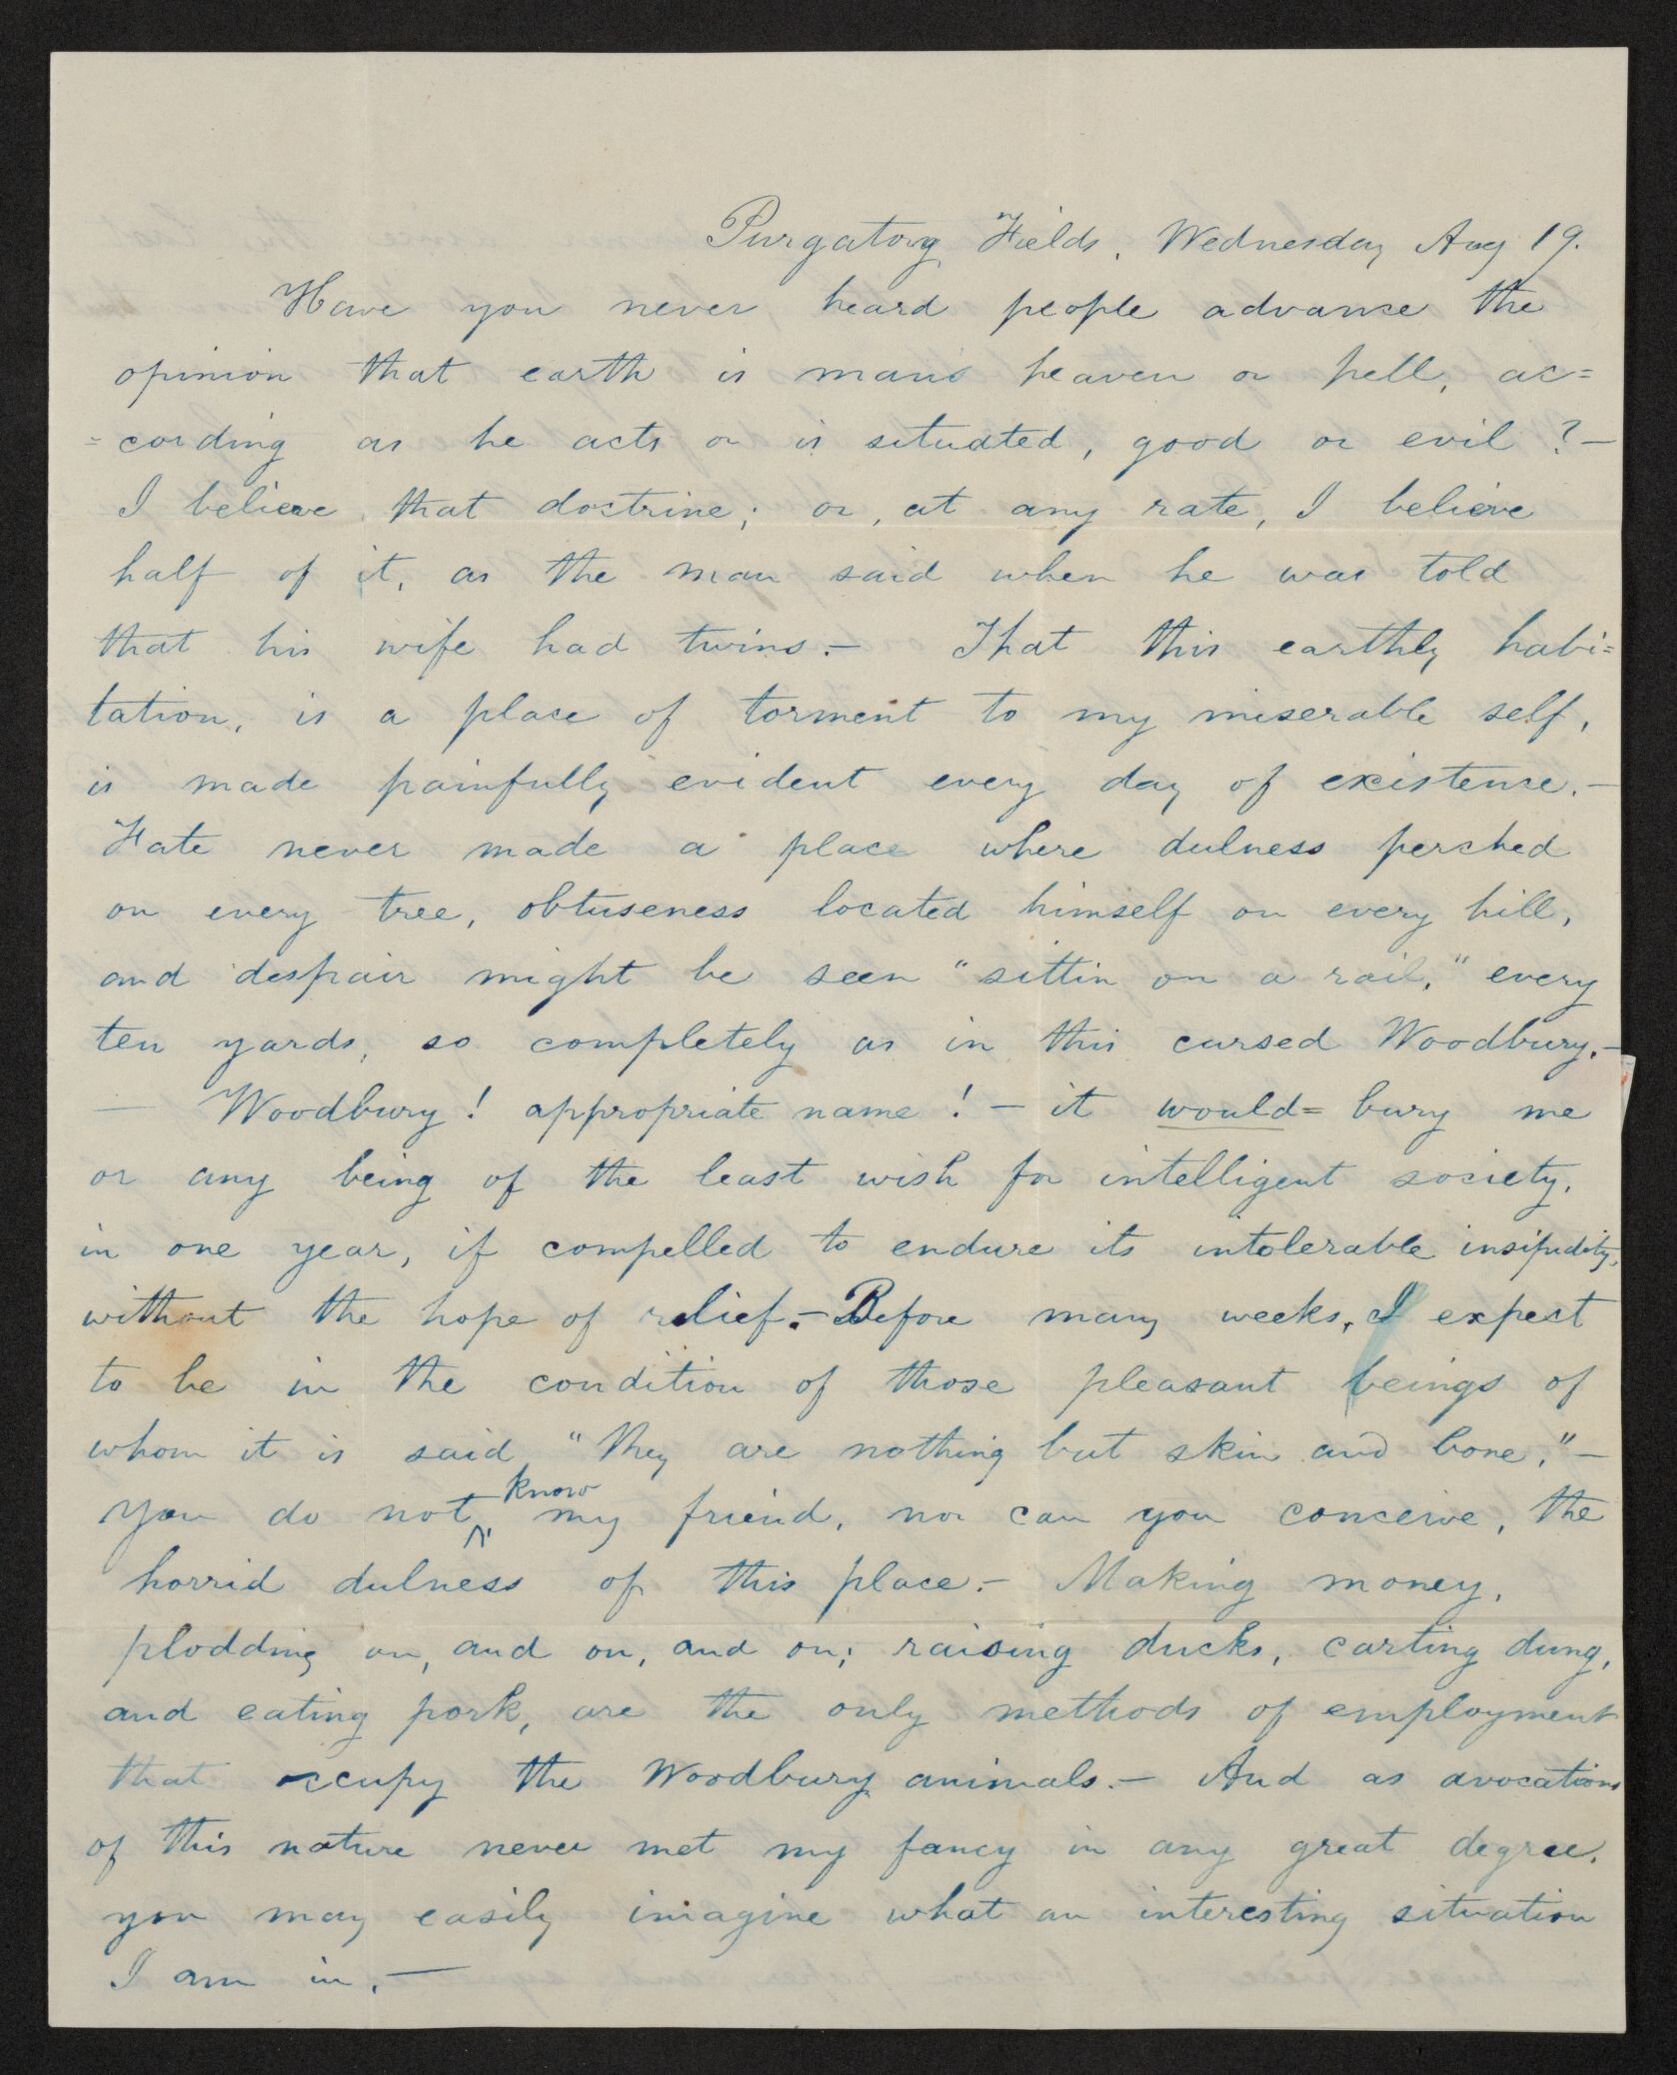 Purgatory Fields, Wednesday Aug 19.
Have you never heard people advance the
opinion that earth is man's heaven or hell, ac=
=cording as he acts or is situated, good or evil ? —
I believe that doctrine; or, at any rate, I believe
half of it, as the man said when he was told
that his wife had twins. — That this earthly habi=
tation, is a place of torment to my miserable self,
is made painfully evident every day of existence. —
Fate never made a place where dulness perched
on every tree, obtuseness located himself on every hill,
and despair might be seen "sittin on a rail," every
ten yards, so completely as in this cursed Woodbury. —
— Woodbury ! appropriate name ! — it would= bury me
or any being of the least wish for intelligent society,
in one year, if compelled to endure its intolerable insipidity,
without the hope of relief. — Before many weeks, I expect
to be in the condition of those pleasant beings of
whom it is said "they are nothing but skin and bone," —
know
You do not my friend, nor can you conceive, the
horrid dulness of this place. — Making money,
plodding on, and on, and on; raising ducks, carting dung,
and eating pork, are the only methods of employment
that occupy the Woodbury animals. — And as avocations
of this nature never met my fancy in any great degree,
you may easily imagine what an interesting situation
I am in. —